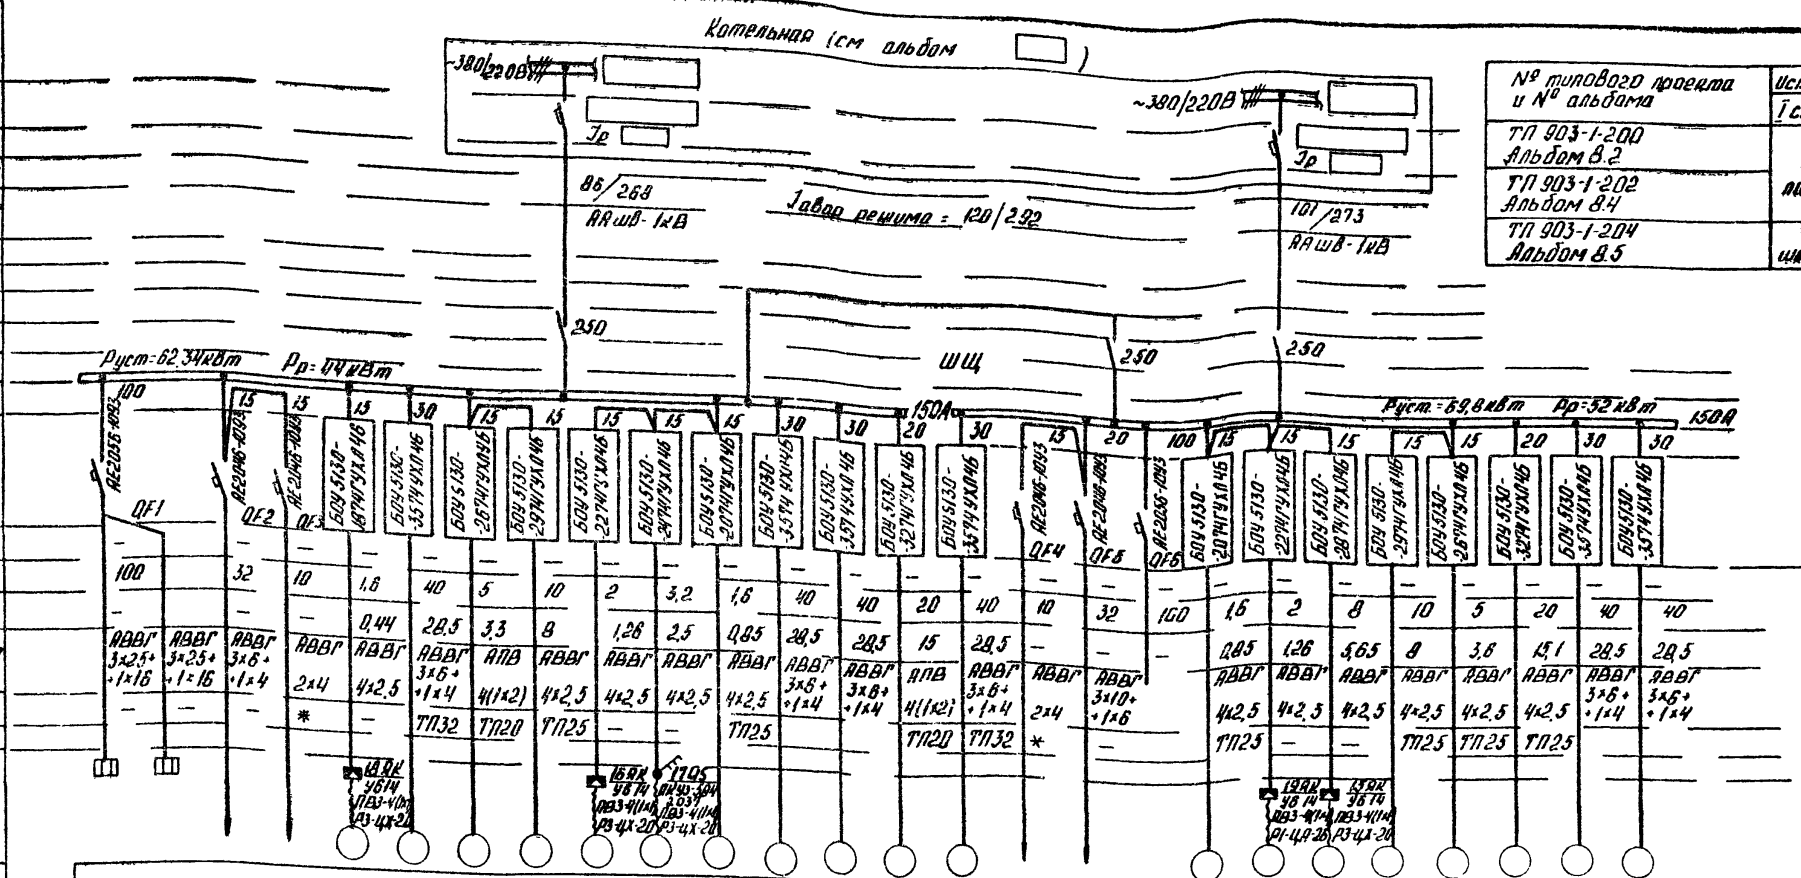 Котельная (см альбом )
~380/220В
Iр
~380/220В
Iр
86/268
ААШВ-1кВ
Iавар режима = 120/292
101/273
ААШВ-1кВ
№ типового проекта
и № альбома
ТП 903-1-200
Альбом 8.2
ТП 903-1-202
Альбом 8.4
ТП 903-1-204
Альбом 8.5
250
250
250
ШЩ
Руст=62.34кВт Рр=44кВт
150А
Руст=69,8кВт Рр=52кВт
150А
100 15 15 15 30 15 15 15 15 15 30 30 20 30 15 20 100 15 15 15 15 15 20 30 30
АЕ2056-10У3
QF1
АЕ2046-10У3
QF2
АЕ2046-10У3
QF3
БОУ5130-
-1874ГУХЛ4Б
БОУ5130-
-3574УХЛ4Б
БОУ5130-
-2674ГУХЛ4Б
БОУ5130-
-2974ГУХЛ4Б
БОУ5130-
-2274ГУХЛ4Б
БОУ5130-
-2474ГУХЛ4Б
БОУ5130-
-2074ГУХЛ4Б
БОУ5130-
-3574УХЛ4Б
БОУ5130-
-3574УХЛ4Б
БОУ5130-
-3274ГУХЛ4Б
БОУ5130-
-3574УХЛ4Б
АЕ2046-10У3
QF4
АЕ2046-10У3
QF5
АЕ2056-10У3
QF6
БОУ5130-
-2074ГУХЛ4Б
БОУ5130-
-2274ГУХЛ4Б
БОУ5130-
-2874ГУХЛ4Б
БОУ5130-
-2974ГУХЛ4Б
БОУ5130-
-2674ГУХЛ4Б
БОУ5130-
-3274ГУХЛ4Б
БОУ5130-
-3574УХЛ4Б
БОУ5130-
-3574УХЛ4Б
100 32 10 1,6 40 5 10 2 3,2 1,6 40 40 20 40 10 32 100 1,6 2 8 10 5 20 40 40
0,44 28,5 3,3 8 1,26 2,5 0,85 28,5 28,5 15 28,5 0,85 1,26 5,65 8 3,6 15,1 28,5 28,5
АВВГ АВВГ АВВГ АВВГ АВВГ АВВГ АПВ АВВГ АВВГ АВВГ АВВГ АВВГ АВВГ АПВ АВВГ АВВГ АВВГ АВВГ АВВГ АВВГ АВВГ АВВГ АВВГ АВВГ АВВГ
3х25+ 3х25+ 3х6+ 2х4 4х2,5 3х6+ 4(1х2) 4х2,5 4х2,5 4х2,5 4х2,5 3х6+ 3х6+ 4(1х2) 3х6+ 2х4 3х10+ 4х2,5 4х2,5 4х2,5 4х2,5 4х2,5 4х2,5 3х6+ 3х6+
+1х16 +1х16 +1х4 +1х4 +1х4 +1х4 +1х4 +1х6 +1х4 +1х4
* ТП32 ТП20 ТП25 ТП25 ТП20 ТП32 * ТП25 ТП25 ТП25 ТП25
18ЯК
У614
РЗ-ЦХ-20
16ЯК
У614
РЗ-ЦХ-20
РЗ-ЦХ-20
19ЯК
У614
15ЯК
У614
РЗ-ЦХ-20